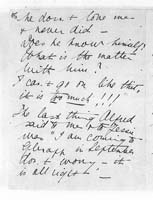 "he don't love me
& never did —
Does he know himself
What is the matter
with him?
I can't go on like that,
it is too much!!!
The last thing Alfred
said to me
was "I am coming to
in September
don't worry — it
is all right"